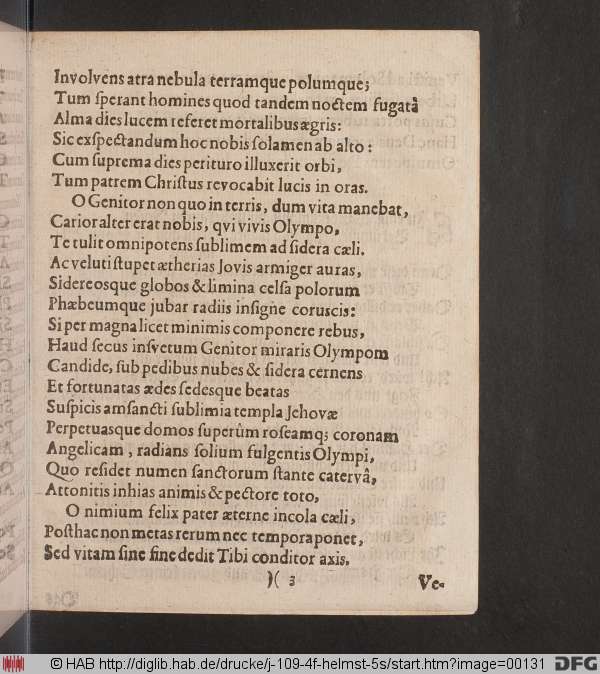 Involvens atra nebula terramque polumque;
Tum ſperant homines quod tandem noctem fugatâ
Alma dies lucem referet mortalibus ægris:
Sic exſpectandum hoc nobis ſolamen ab alto:
Cum ſuprema dies perituro illuxerit orbi,
Tum patrem Chriſtus revocabit lucis in oras.
O Genitor non quo in terris, dum vita manebat,
Carior alter erat nobis, qvi vivis Olympo,
Te tulit omnipotens ſublimem ad ſidera cæli.
Ac veluti ſtupet ætherias Jovis armiger auras,
Sidereosque globos & limina celſa polorum
Phæbeumque jubar radiis inſigne coruscis:
Si per magna licet minimis componere rebus,
Haud ſecus inſvetum Genitor miraris Olympom
Candide, ſub pedibus nubes & ſidera cernens
Et fortunatas ædes ſedesque beatas
Suſpicis amſancti ſublimia templa Jehovæ
Perpetuasque domos ſuperûm roſeamq; coronam
Angelicam, radians ſolium fulgentis Olympi,
Quo reſidet numen ſanctorum ſtante catervâ,
Attonitis inhias animis & pectore toto,
O nimium felix pater æterne incola cæli,
Poſthac non metas rerum nec tempora ponet,
Sed vitam ſine fine dedit Tibi conditor axis.
)( 3 Ve-
© HAB http://diglib.hab.de/drucke/j-109-4f-helmst-5s/start.htm?image=00131 DFG